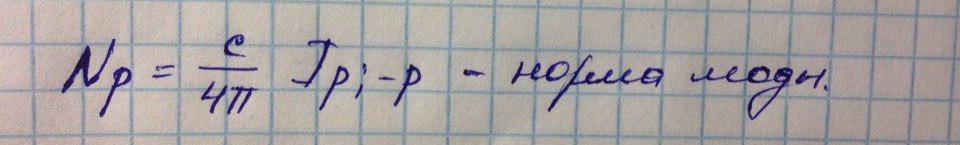 Np = c/4π Jp;-p - норма моды.